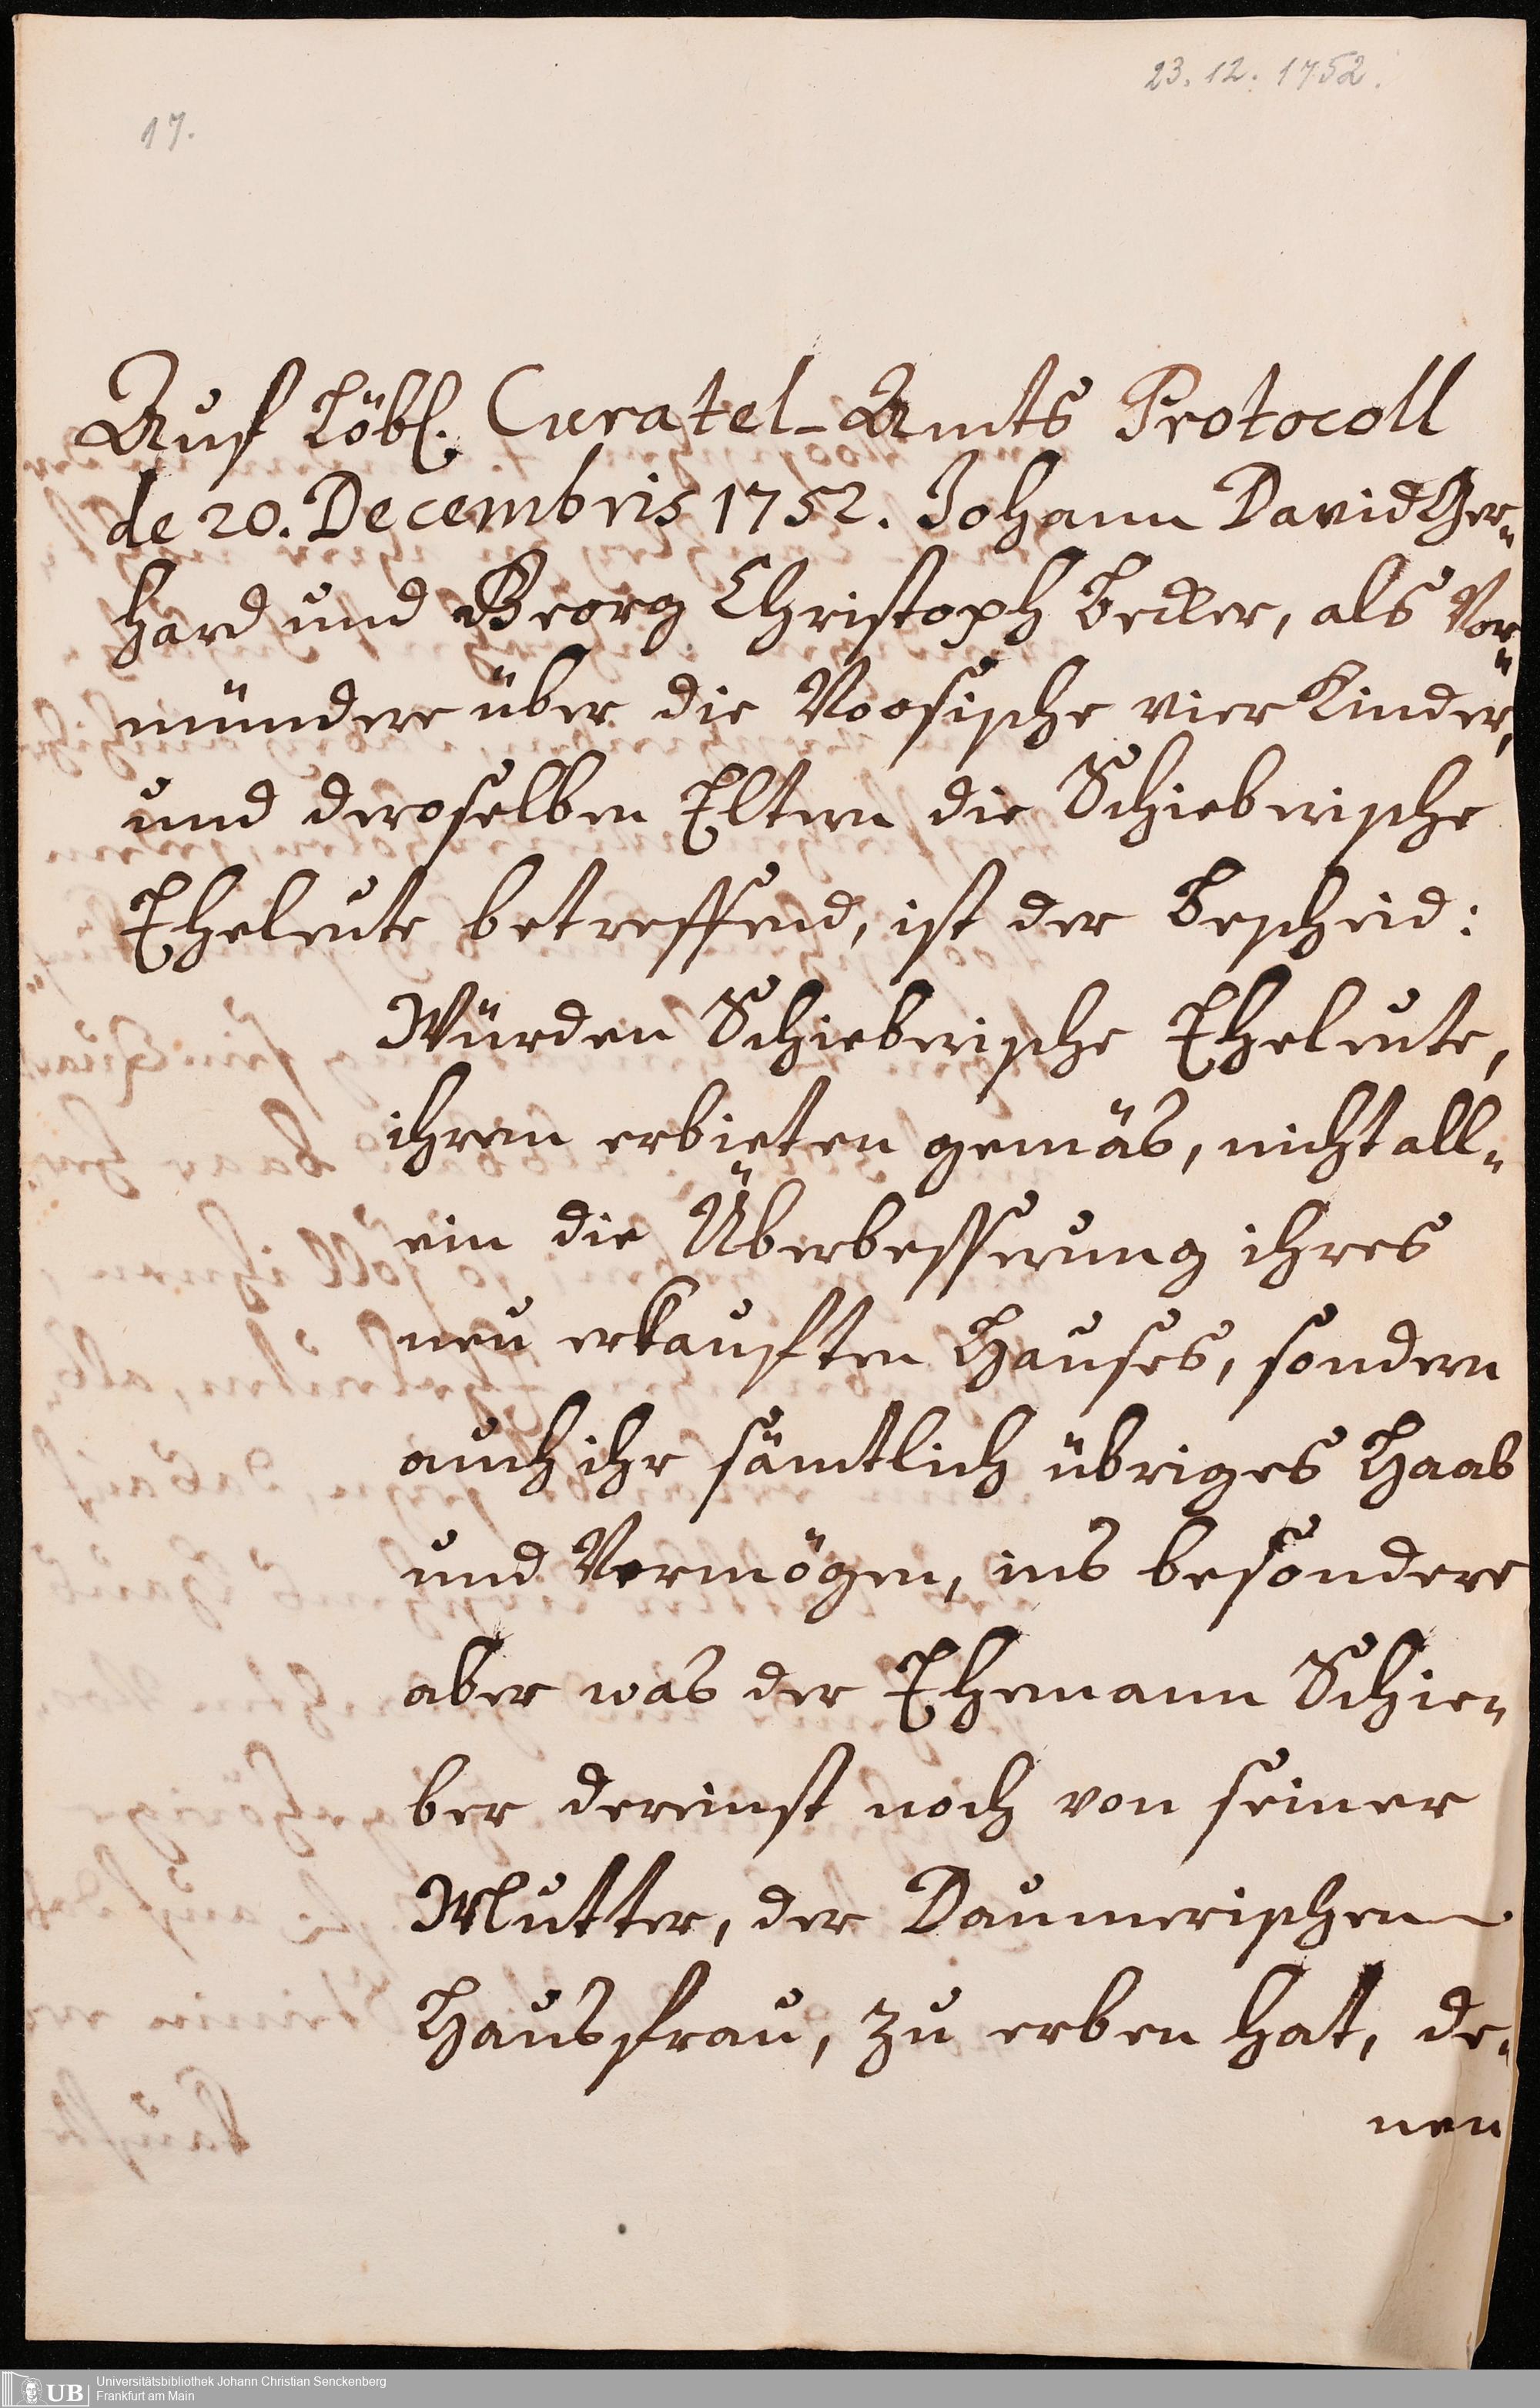 23. 12. 1752.
17.
Auf Löbl. Curatel-Amts Protocoll
de 20. Decembris 1752. Johann David Ger„
hard und Georg Christoph Becker, als Vor„
mündere über die Noosische vier Kinder,
und deroselben Eltern die Schieberische
Eheleute betreffend, ist der Bescheid:
Würden Schieberische Eheleute,
ihrem erbieten gemäs, nicht all„
ein die Überbesserung ihres
neu erkaufften Hauses, sondern
auch ihr sämtlich übriges Haab
und Vermögen, ins besondere
aber was der Ehemann Schie„
ber dereinst noch von seiner
Mutter, der Daumerischen
Hausfrau, zu erben hat, de„
nen
UB
Universitätsbibliothek Johann Christian Senckenberg
Frankfurt am Main